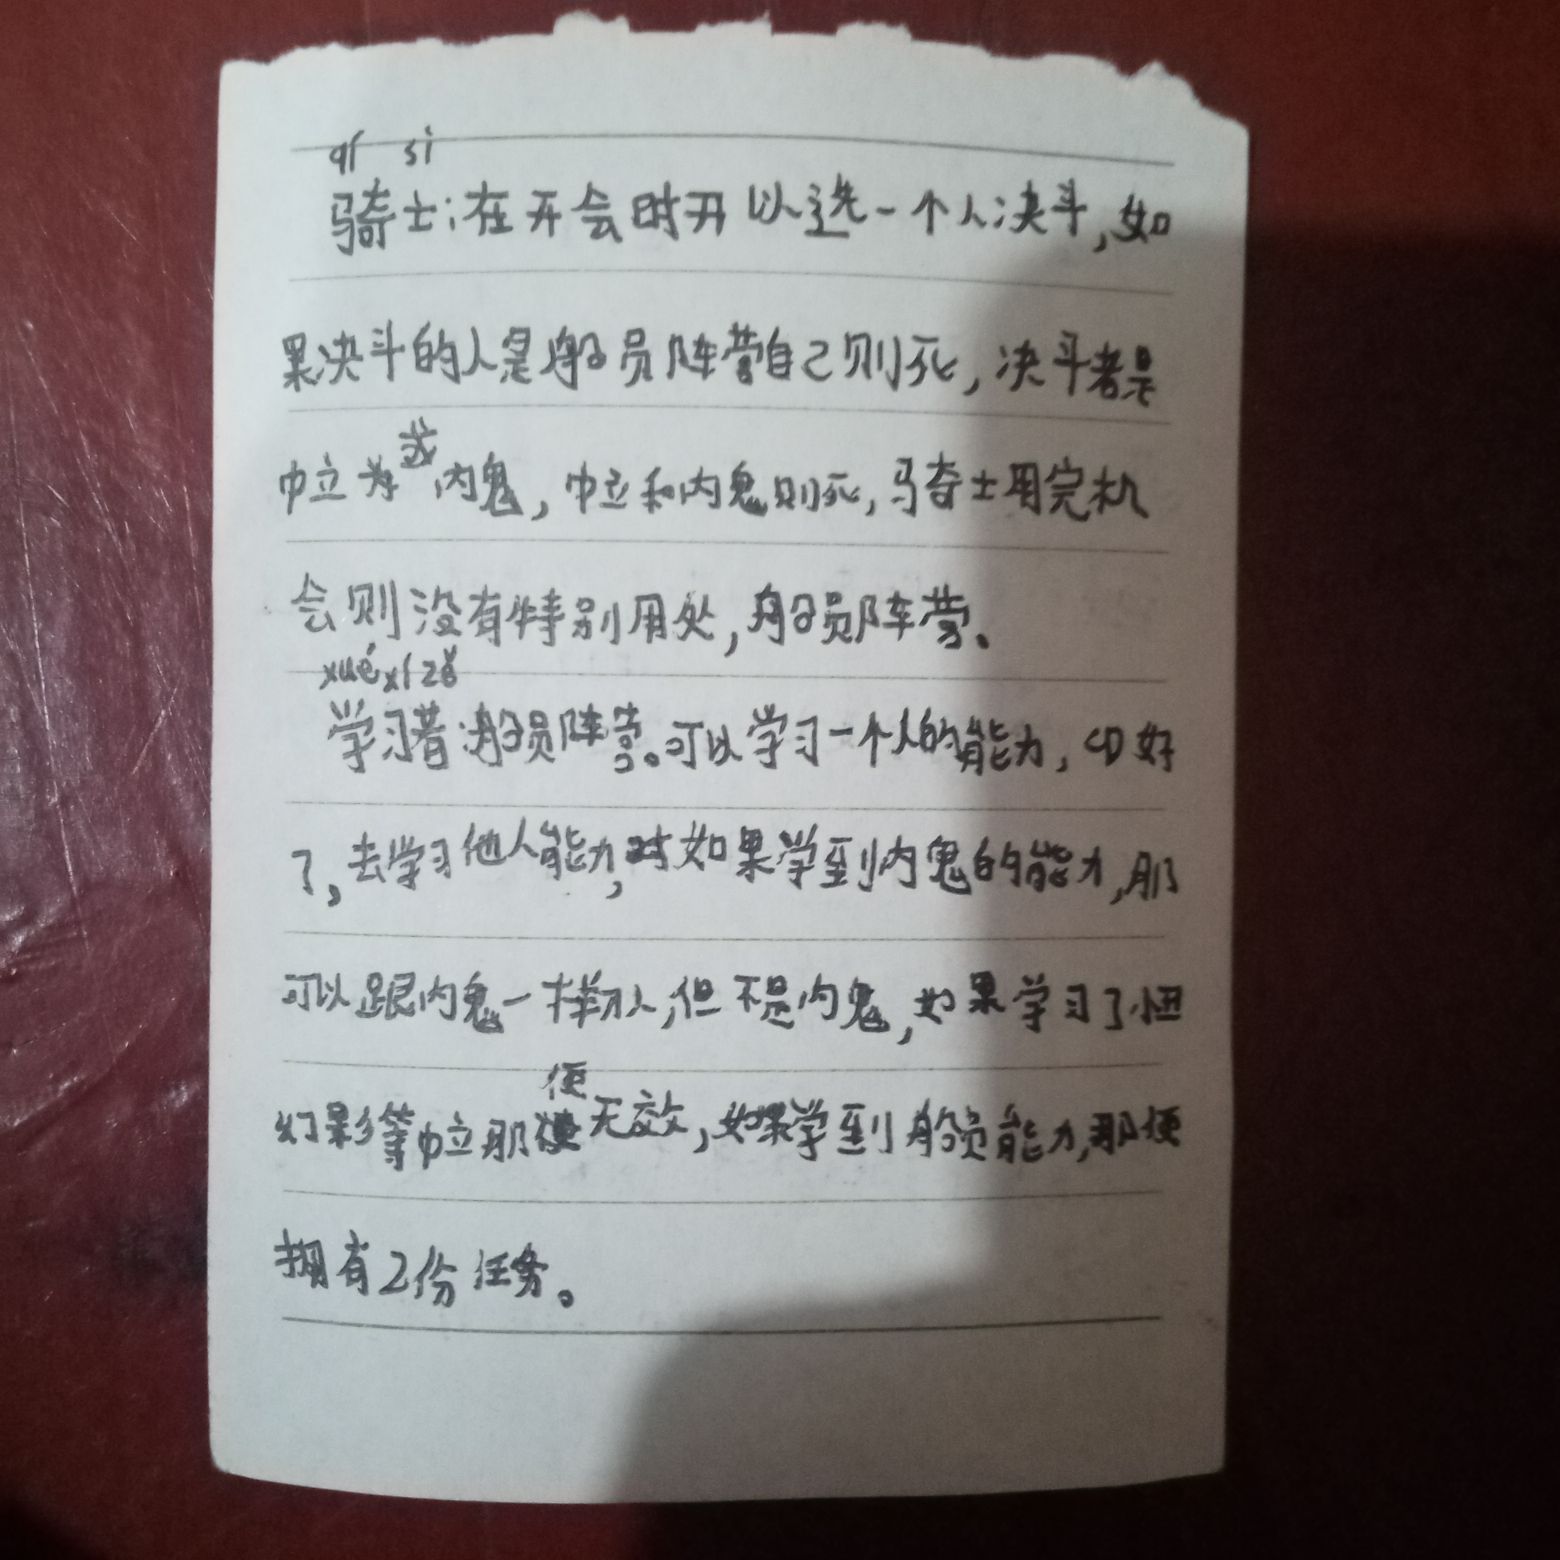 qí sì
骑士:在开会时开以选一个人决斗,如
果决斗的人是船员阵营自己则死,决斗者是
中立为或内鬼,中立和内鬼则死,骑士用完机
会则没有特别用处,船员阵营。
xué xí zě
学习者:船员阵营。可以学习一个人的能力,CD好
了,去学习他人能力,时如果学到内鬼的能力,那
可以跟内鬼一样刀人,但不是内鬼,如果学习了恒
幻影等中立那便无效,如果学到船员能力,那便
拥有2份任务。